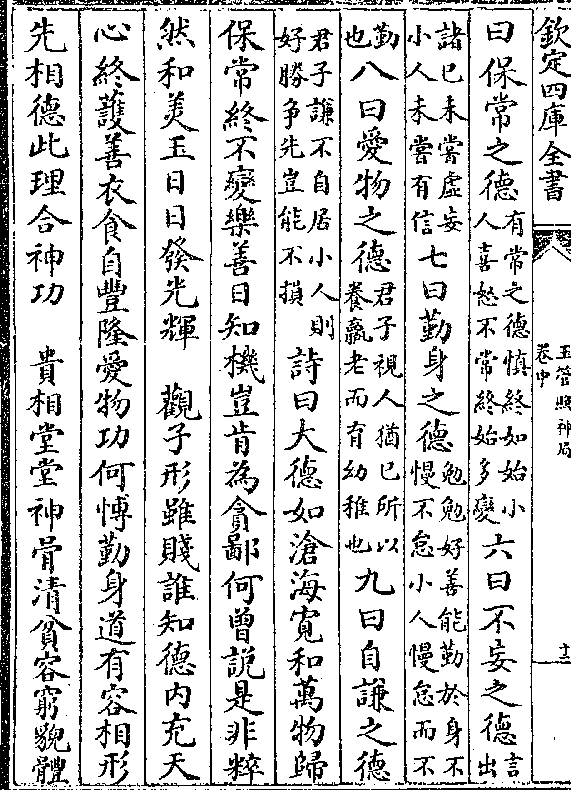 欽定四庫全書
玉管照神局
卷中
十二
曰保常之德有常之德慎終如始小人喜怒不常終始多變六曰不妄之德言出
諸已未嘗虛妄小人未嘗有信七曰勤身之德勉勉好善能勤於身不慢不怠小人慢怠而不
勤也八曰愛物之德君子視人猶已所以養羸老而有幼稚也九曰自謙之德
君子謙不自居小人則好勝争先豈能不損詩曰大德如滄海寛和萬物歸
保常終不變樂善日知機豈肯為貪鄙何曽說是非粹
然和美玉日日發光輝　觀子形雖賤誰知德内充天
心終䕶善衣食自豐隆愛物功何愽勤身道有容相形
先相德此理合神功　貴相堂堂神骨清貧容窮貌體